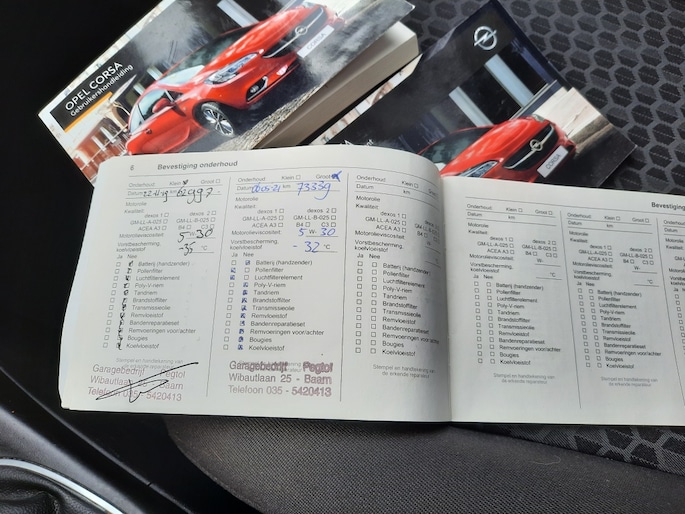 OPEL CORSA
Gebruikershandleiding
CORSA
CORSA
6 Bevestiging onderhoud
Onderhoud: Klein Groot
Datum km
Motorolie
Kwaliteit:
dexos 1 dexos 2
GM-LL-A-025 GM-LL-B-025
ACEA A3 B4 C3
Motorolieviscositeit: 5 W- 30
Vorstbescherming,
koelvloeistof -35 °C
Ja Nee
Batterij (handzender)
Pollenfilter
Luchtfilterelement
Poly-V-riem
Tandriem
Brandstoffilter
Transmissieolie
Remvloeistof
Bandenreparatieset
Remvoeringen voor/achter
Bougies
Koelvloeistof
Stempel en handtekening van
Garagebedrijf Pegtol
Wibautlaan 25 - Baarn
Telefoon 035 - 5420413
Onderhoud: Klein Groot
Datum km 73339
Motorolie
Kwaliteit:
dexos 1 dexos 2
GM-LL-A-025 GM-LL-B-025
ACEA A3 B4 C3
Motorolieviscositeit: 5 W- 30
Vorstbescherming,
koelvloeistof - 32 °C
Ja Nee
Batterij (handzender)
Pollenfilter
Luchtfilterelement
Poly-V-riem
Tandriem
Brandstoffilter
Transmissieolie
Remvloeistof
Bandenreparatieset
Remvoeringen voor/achter
Bougies
Koelvloeistof
Garagebedrijf Pegtol
Wibautlaan 25 - Baarn
Telefoon 035 - 5420413
Onderhoud: Klein Groot
Datum km
Motorolie
Kwaliteit:
dexos 1 dexos 2
GM-LL-A-025 GM-LL-B-025
ACEA A3 B4 C3
Motorolieviscositeit: W-
Vorstbescherming,
koelvloeistof °C
Ja Nee
Batterij (handzender)
Pollenfilter
Luchtfilterelement
Poly-V-riem
Tandriem
Brandstoffilter
Transmissieolie
Remvloeistof
Bandenreparatieset
Remvoeringen voor/achter
Bougies
Koelvloeistof
Stempel en handtekening van
de erkende reparateur
Bevestiging
Onderhoud: Klein Groot
Datum km
Motorolie
Kwaliteit:
dexos 1 dexos 2
GM-LL-A-025 GM-LL-B-025
ACEA A3 B4 C3
Motorolieviscositeit: W-
Vorstbescherming,
koelvloeistof °C
Ja Nee
Batterij (handzender)
Pollenfilter
Luchtfilterelement
Poly-V-riem
Tandriem
Brandstoffilter
Transmissieolie
Remvloeistof
Bandenreparatieset
Remvoeringen voor/achter
Bougies
Koelvloeistof
Stempel en handtekening van
de erkende reparateur
Onderhoud: Klein Groot
Datum km
Motorolie
Kwaliteit:
dexos 1 dexos 2
GM-LL-A-025 GM-LL-B-025
ACEA A3 B4 C3
Motorolieviscositeit: W-
Vorstbescherming,
koelvloeistof °C
Ja Nee
Batterij (handzender)
Pollenfilter
Luchtfilterelement
Poly-V-riem
Tandriem
Brandstoffilter
Transmissieolie
Remvloeistof
Bandenreparatieset
Remvoeringen voor/achter
Bougies
Koelvloeistof
Stempel en handtekening van
de erkende reparateur